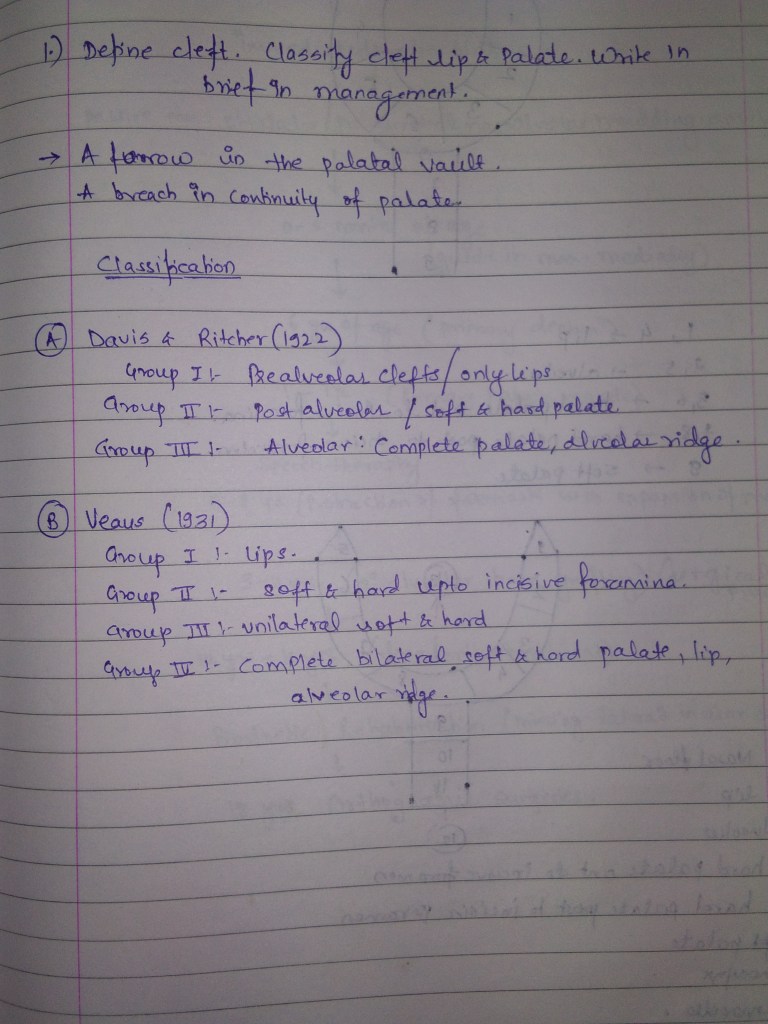 1.) Define cleft. Classify cleft lip & Palate. Write in
brief in management.
→ A furrow in the palatal vault.
A breach in continuity of palate.
Classification
(A) Davis & Ritcher (1922)
Group I :- Prealveolar clefts / only lips
Group II :- Post alveolar / soft & hard palate
Group III :- Alveolar : Complete palate, alveolar ridge.
(B) Veaus (1931)
Group I :- lips.
Group II :- soft & hard upto incisive foramina.
Group III :- unilateral soft & hard
Group IV :- Complete bilateral soft & hard palate, lip,
alveolar ridge.